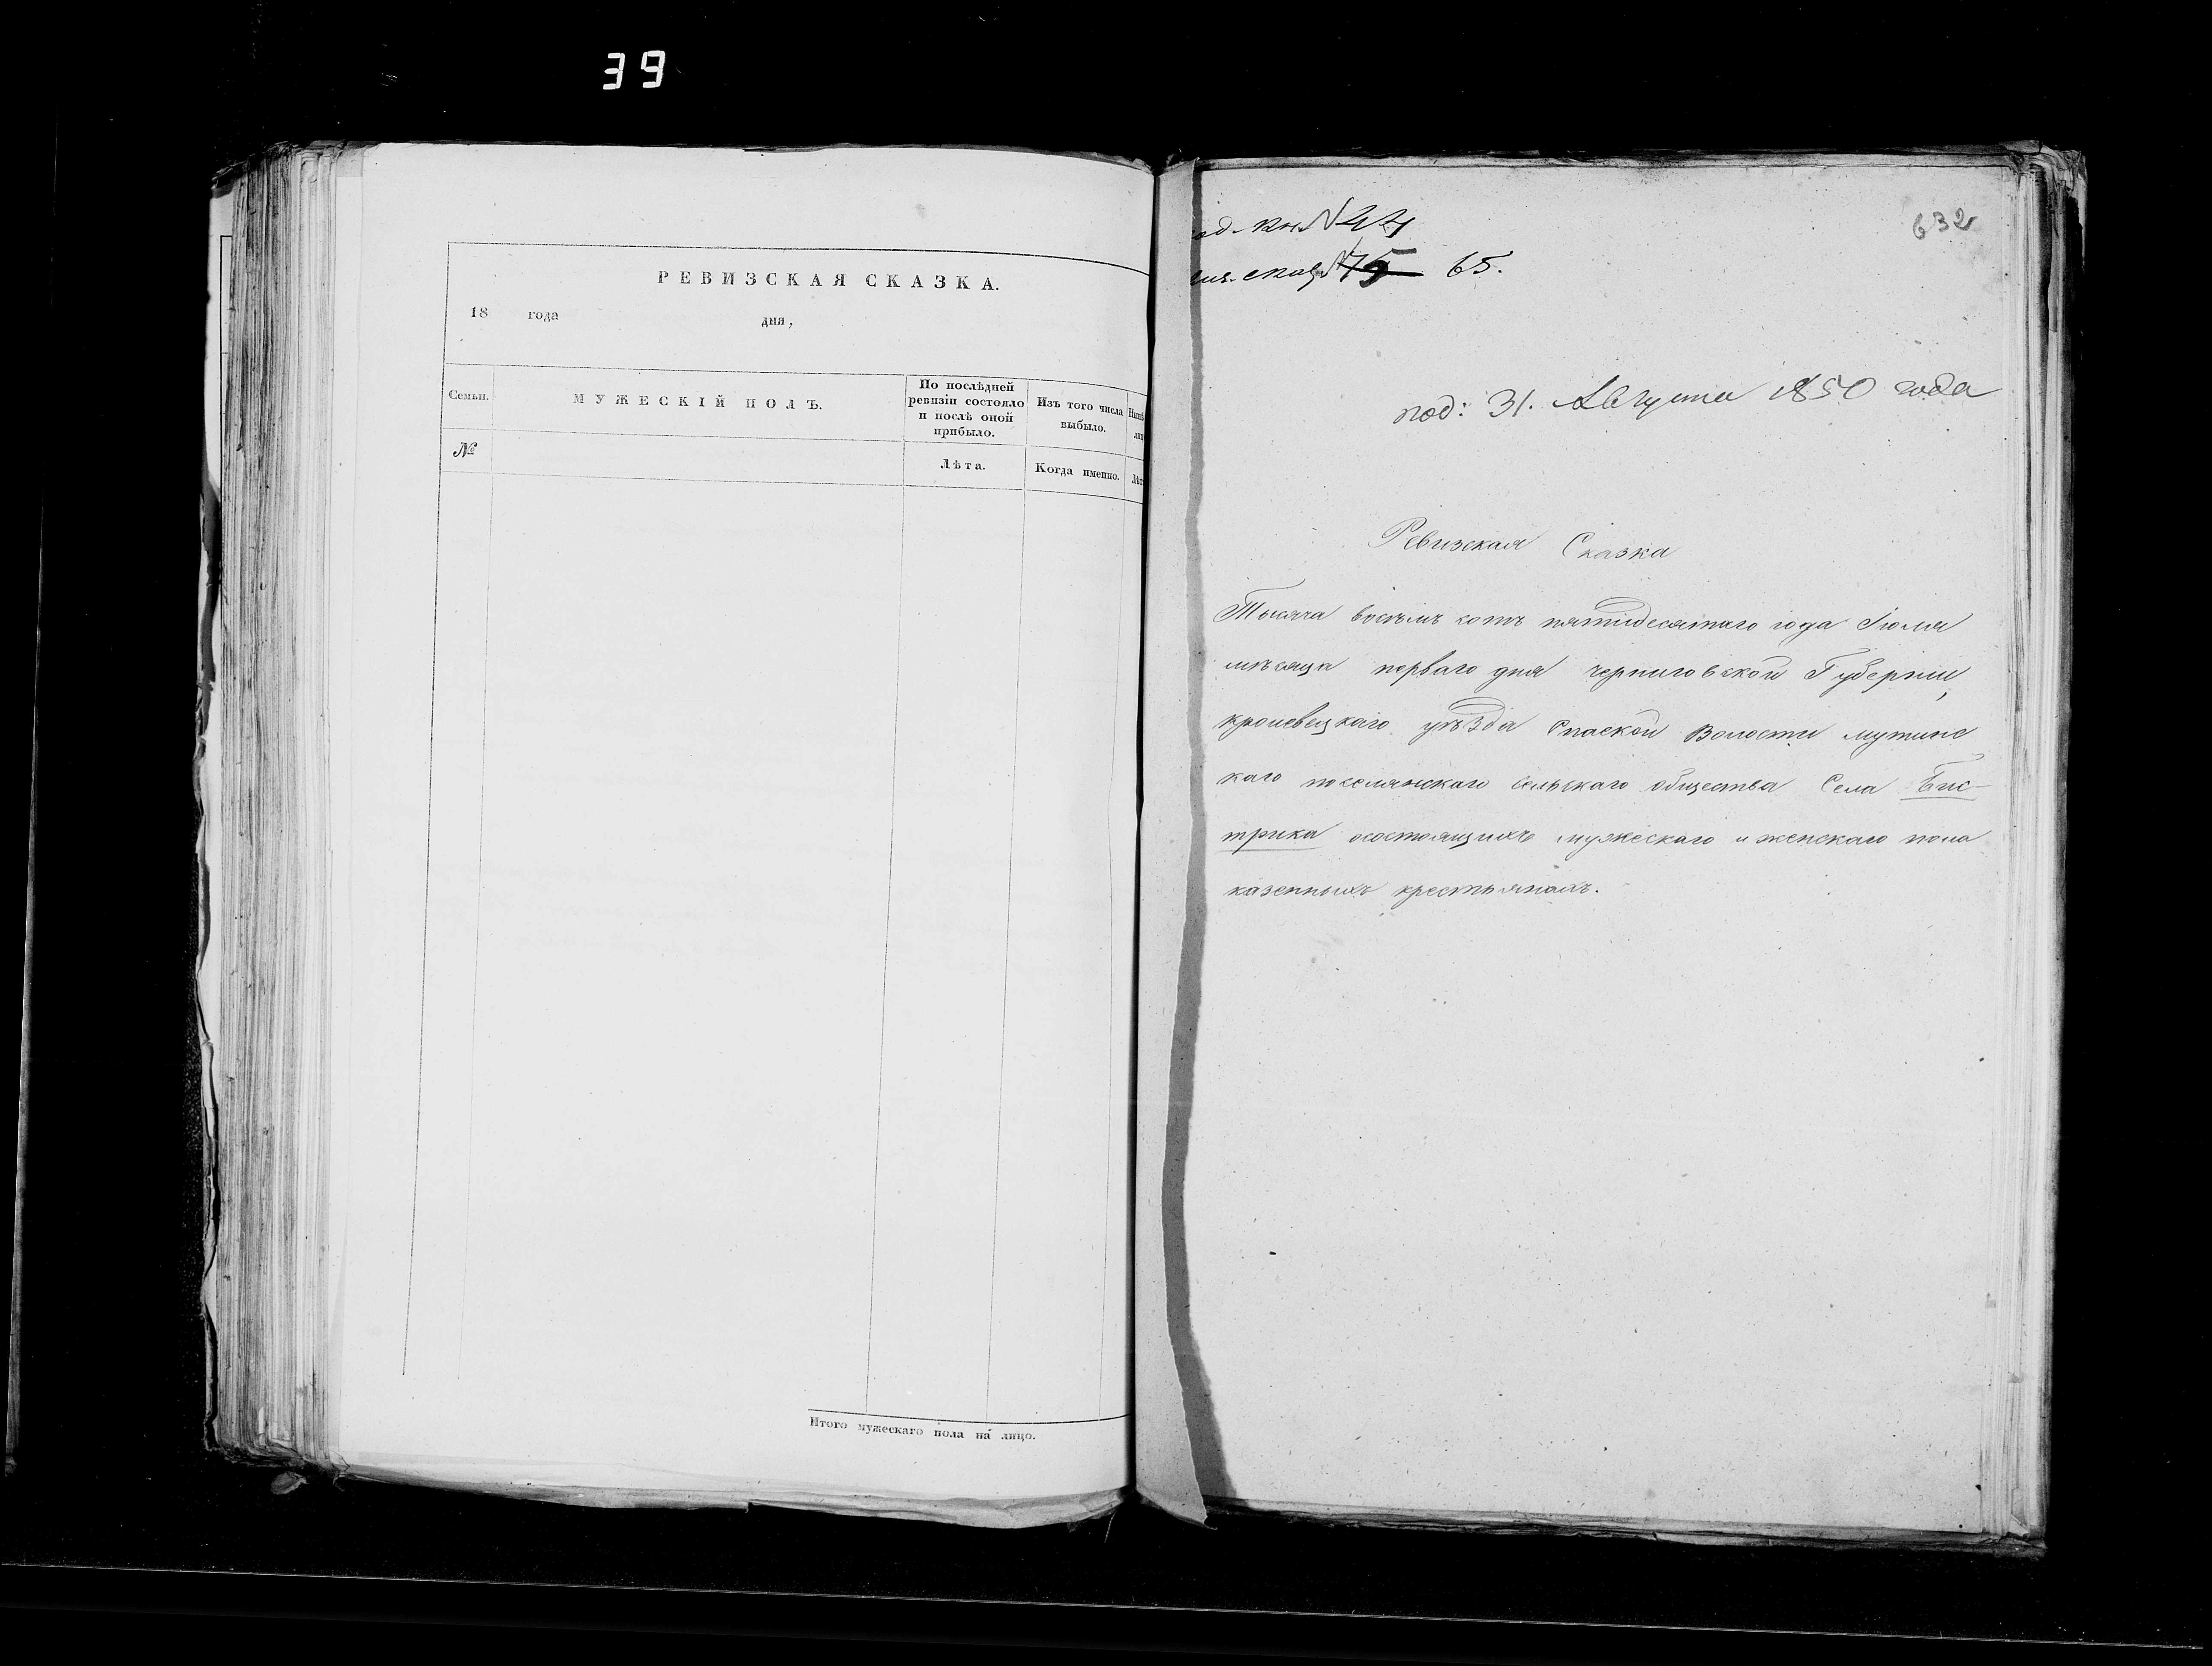 39
РЕВИЗСКАЯ СКАЗКА.
18 года дня,
Семьи.
МУЖЕСКІЙ ПОЛЪ.
По послѣдней
ревизіи состояло
и послѣ оной
прибыло.
Изъ того числа
выбыло.
№
Лѣта.
Когда именно.
Итого мужескаго пола на лицо.
632
кн. №
65.
под: 31. Августа 1850 года
Ревизская Сказка
Тысяча восемъ сотъ пятидесятаго года Іюля
мѣсяца перваго дня черниговской Губерніи,
кролевецкаго уѣзда Спаской Волости мутинс
каго поселянскаго сельскаго общества Села Бис-
трика осостоящихъ мужескаго и женскаго пола
казенныхъ крестьянахъ.